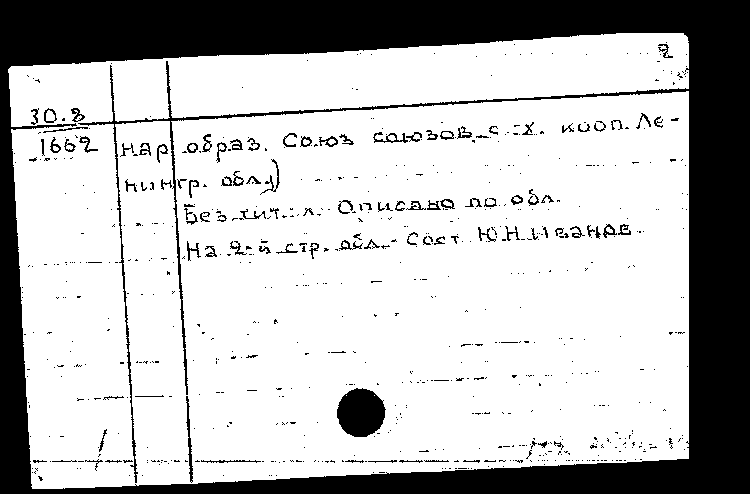 2
30.8
1662
нар образ. Союз союзов с.-х. кооп. Ле-
нингр. обл.)
Без тит. л. Описано по обл.
На 2-й стр. обл.- Сост Ю.Н.Иванов.